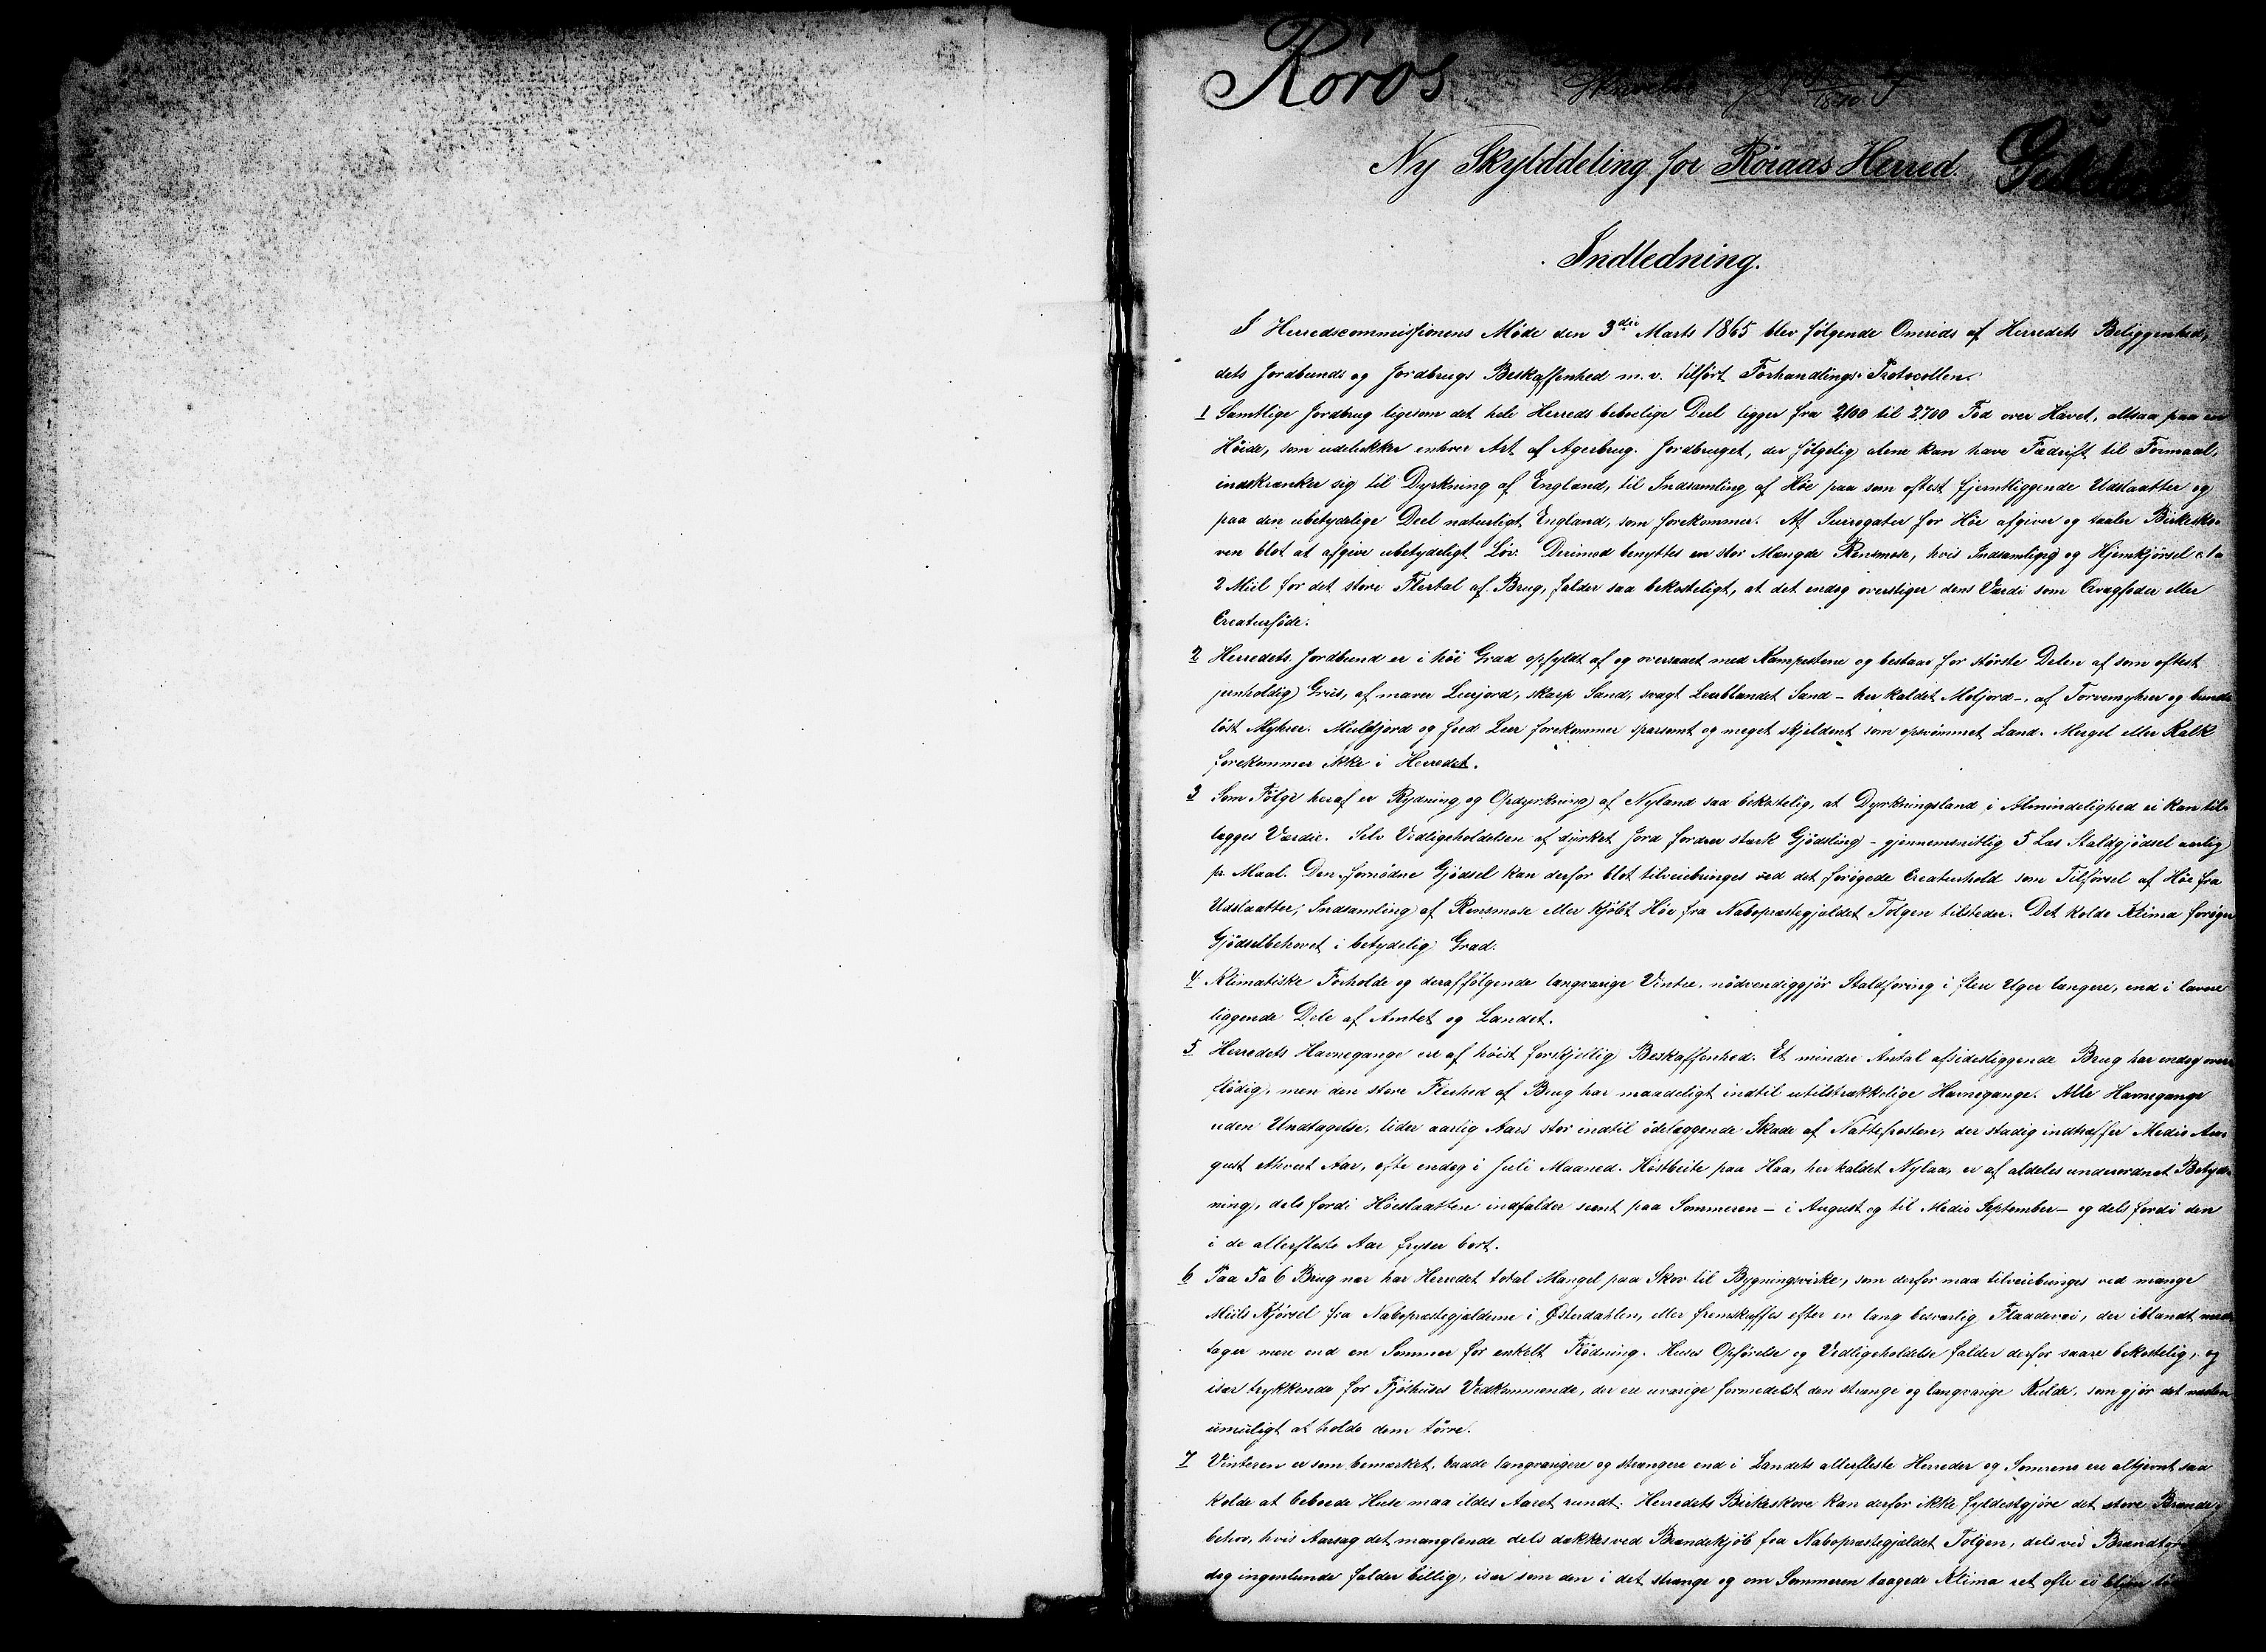 Röros
Ny Skylddeling for Röraas Herred.
Guldal
Indledning.
I Herredscommissionens Möde den 3die Marts 1865 blev følgende Omrids af Herredets Beliggenhed,
dets Jordbunds og Jordbrugs Beskaffenhed m. v. tilført Forhandlings-Protocollen.
1 Samtlige Jordbrug ligesom det hele Herreds beboelige Deel ligger fra 2100 til 2700 Fod over Havet, altsaa paa en
Höide, som udelukker enhver Art af Agerbrug. Jordbruget, der følgelig alene kan have Fædrift til Formaal,
indskrænker sig til Dyrkning af England, til Indsamling af Höe paa som oftest fjerntliggende Udslaatter og
paa den ubetydelige Deel naturligt England, som forekommer. Af Surrogater for Höe afgiver og taaler Birkesko-
ven blot at afgive ubetydeligt Löv. Derimod benyttes en stor Mængde Rensmose, hvis Indsamling og Hjemkjörsel 1 a
2 Miil for det store Flertal af Brug, falder saa bekosteligt, at det endog overstiger dens Værdi som Qvægfoder eller
Creaturföde.
2 Herredets Jordbund er i höi Grad opfyldt af og oversaaet med Kampestene og bestaar for störste Delen af som oftest
jernholdig Gruus, af maver Leerjord, skarp Sand, svagt Leerblandet Sand – her kaldet Mojord –, af Torvemyhrer og bund-
löst Myhrer. Muldjord og feed Leer forekommer sparsomt og meget skjeldent som opsvömmet Land. Mergel eller Kalk
forekommer ikke i Herredet.
3 Som Følge heraf er Rydning og Opdyrkning af Nyland saa bekostelig, at Dyrkningsland i Almindelighed ei kan til-
lægges Værdie. Selv Vedligeholdelsen af dyrket Jord fordrer stærk Gjödsling – gjennemsnitlig 5 Læs Staldgjödsel aarlig
pr. Maal. Den fornödne Gjödsel kan derfor blot tilveiebringes ved det forögede Creaturhold som Tilförsel af Höe fra
Udslaatter, Indsamling af Rensmose eller kjöbt Höe fra Nabopræstegjældet Tolgen tilsteder. Det kolde Klima foröger
Gjödselbehovet i betydelig Grad.
4 Klimatiske Forholde og deraf følgende langvarige Vinter, nödvendiggjör Staldforing i flere Uger længere, end i lavere
liggende Dele af Amtet og Landet.
5 Herredets Havnegange ere af höist forskjellig Beskaffenhed. Et mindre Antal afsidesliggende Brug har endog over-
flödig, men den store Fleerhed af Brug har maadeligt indtil utilstrækkelige Havnegange. Alle Havnegange
uden Undtagelse, lider aarlig Aars stor indtil ödelæggende Skade af Nattefrosten, der stadig indtræffer Medio Au-
gust ethvert Aar, ofte endog i Juli Maaned. Höstbeite paa Haa, her kaldet Nylaa, er af aldeles underordnet Betyd-
ning, dels fordi Höeslaatten indfalder seent paa Sommeren – i August og til Medio September – og dels fordi den
i de allerfleste Aar fryser bort.
6 Paa 5 a 6 Brug nær har Herredet total Mangel paa Skov til Bygningsvirke, som derfor maa tilveiebringes ved mange
Miils Kjörsel fra Nabopræstegjældene i Österdahlen, eller fremskaffes efter en lang besværlig Flaadevei, der iblandt med-
tager mere end en Sommer for enkelt Flödning. Huses Opförelse og Vedligeholdelse falder derfor saare bekostelig, og
især trykkende for Fjöshuses Vedkommende, der ere uvarige formedelst den strænge og langvarige Kulde, som gjör det næsten
umuligt at holde dem törre.
7 Vinteren er som bemærket, baade langvarigere og strængere end i Landets allerfleste Herreder og Somrene ere altjevnt saa
kolde at beboede Huse maa ildes Aaret rundt. Herredets Birkeskove kan derfor ikke fyldestgjöre det store Brænde-
behov, hvis Aarsag det manglende dels dækkes ved Brændekjöb fra Nabopræstegjældet Tolgen, dels ved
dog ingenlunde falder billig, især som den i det strænge og om Sommeren taagede Klima ret ofte ei